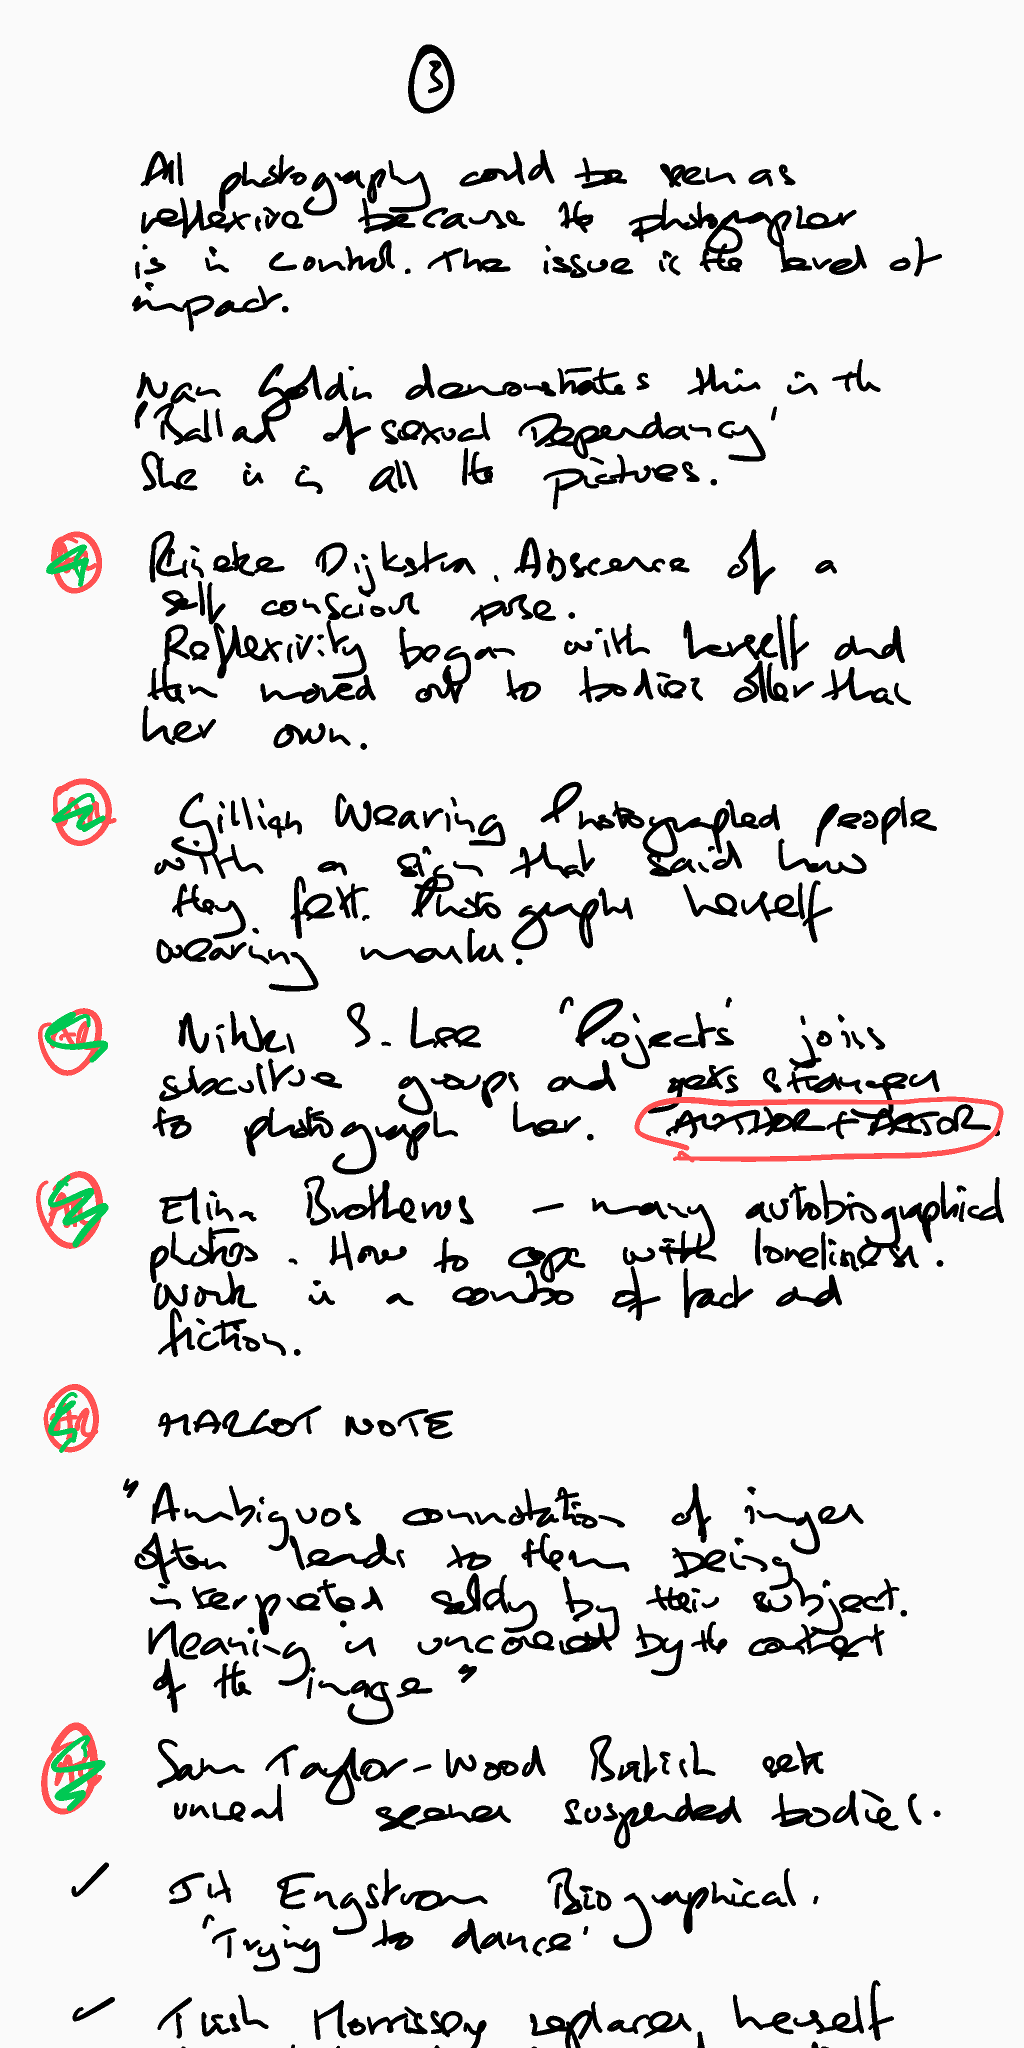 3
All photography could be seen as
reflexive because the photographer
is in control. The issue is the level of
impact.
Nan Goldin demonstrates this in th
'Ballad of sexual Dependancy'
She is in all the pictures.
Rineke Dijkstra. Abscence of a
self conscious pose.
Reflexivity began with herself and
then moved out to bodies other than
her own.
Gillian Wearing Photographed people
with a sign that said how
they felt. Photographs herself
wearing masks.
Nikki S. Lee 'Projects' joins
subculture groups and gets strangers
to photograph her. AUTHOR + ACTOR.
Elina Brotherus – many autobiographical
photos. How to cope with loneliness.
Work is a combo of fact and
fiction.
MARGOT NOTE
"Ambiguos connotation of images
often leads to them being
interpreted solely by their subject.
Meaning is uncovered by the context
of the image"
Sam Taylor-Wood British sets
unreal scenes suspended bodies.
JH Engstrom Biographical.
'Trying to dance'
Trish Morrissey replaces herself